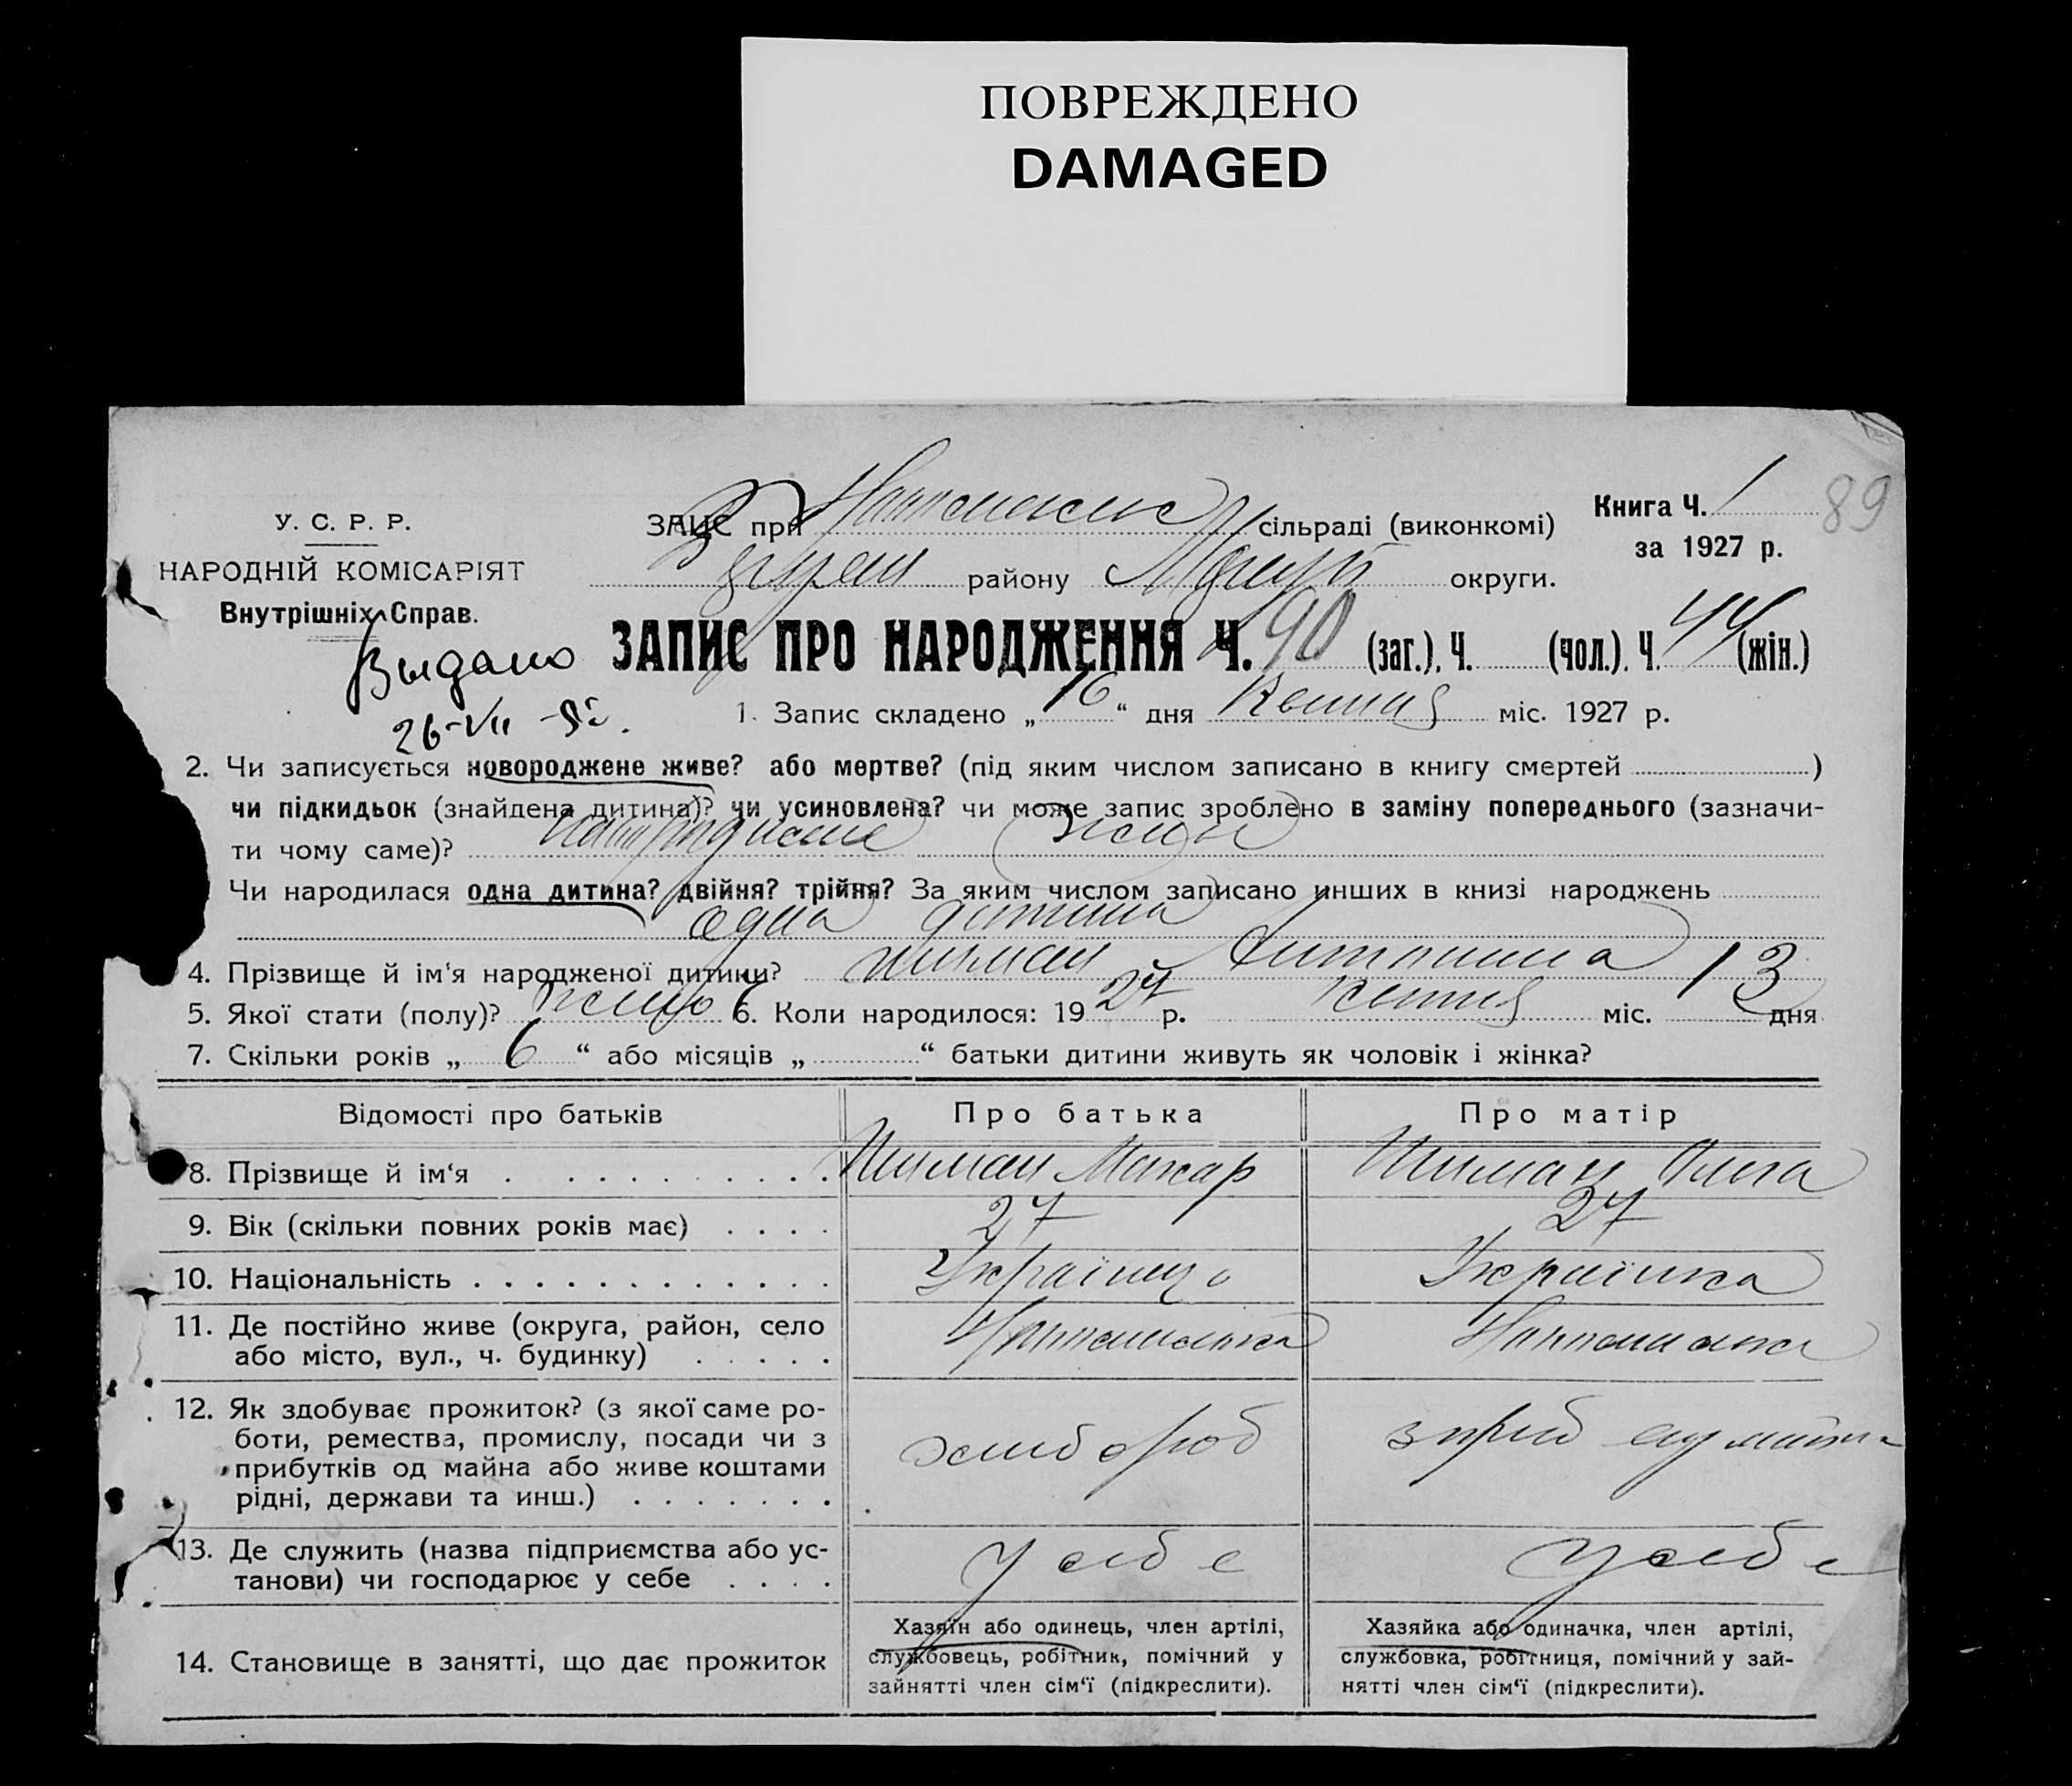 ПОВРЕЖДЕНО
DAMAGED
У. С. Р. Р.
НАРОДНІЙ КОМІСАРІЯТ
Внутрішніх Справ.
Выдано
26-VII
ЗАПИС при сільраді (виконкомі)
району округи.
Книга Ч. 1
за 1927 р.
89
ЗАПИС ПРО НАРОДЖЕННЯ Ч. 90 (заг.), Ч. (чол.). Ч. 44 (жін.)
1. Запис складено „ 16 “ дня міс. 1927 р.
2. Чи записується новороджене живе? або мертве? (під яким числом записано в книгу смертей )
чи підкидьок (знайдена дитина)? чи усиновлена? чи може запис зроблено в заміну попереднього (зазначи-
ти чому саме)?
Чи народилася одна дитина? двійня? трійня? За яким числом записано инших в книзі народжень
одна дитина
4. Прізвище й ім‘я народженої дитини?
5. Якої стати (полу)? 6. Коли народилося: 19 27 р. міс. 13 дня
7. Скільки років „ 6 “ або місяців „ “ батьки дитини живуть як чоловік і жінка?
Відомості про батьків Про батька Про матір
8. Прізвище й ім‘я . Макар
9. Вік (скільки повних років має) . . . . 27 27
10. Національність . . . . . . . . . . . . Українець Українка
11. Де постійно живе (округа, район, село
або місто, вул., ч. будинку) . . . . .
12. Як здобуває прожиток? (з якої саме ро-
боти, ремества, промислу, посади чи з
прибутків од майна або живе коштами
рідні, держави та инш.) . . . . . . .
хлибороб
13. Де служить (назва підприємства або ус-
танови) чи господарює у себе . . . .
у себе у себе
14. Становище в занятті, що дає прожиток
Хазяїн або одинець, член артілі,
службовець, робітник, помічний у
зайнятті член сім‘ї (підкреслити).
Хазяйка або одиначка, член артілі,
службовка, робітниця, помічний у зай-
нятті член сім‘ї (підкреслити).